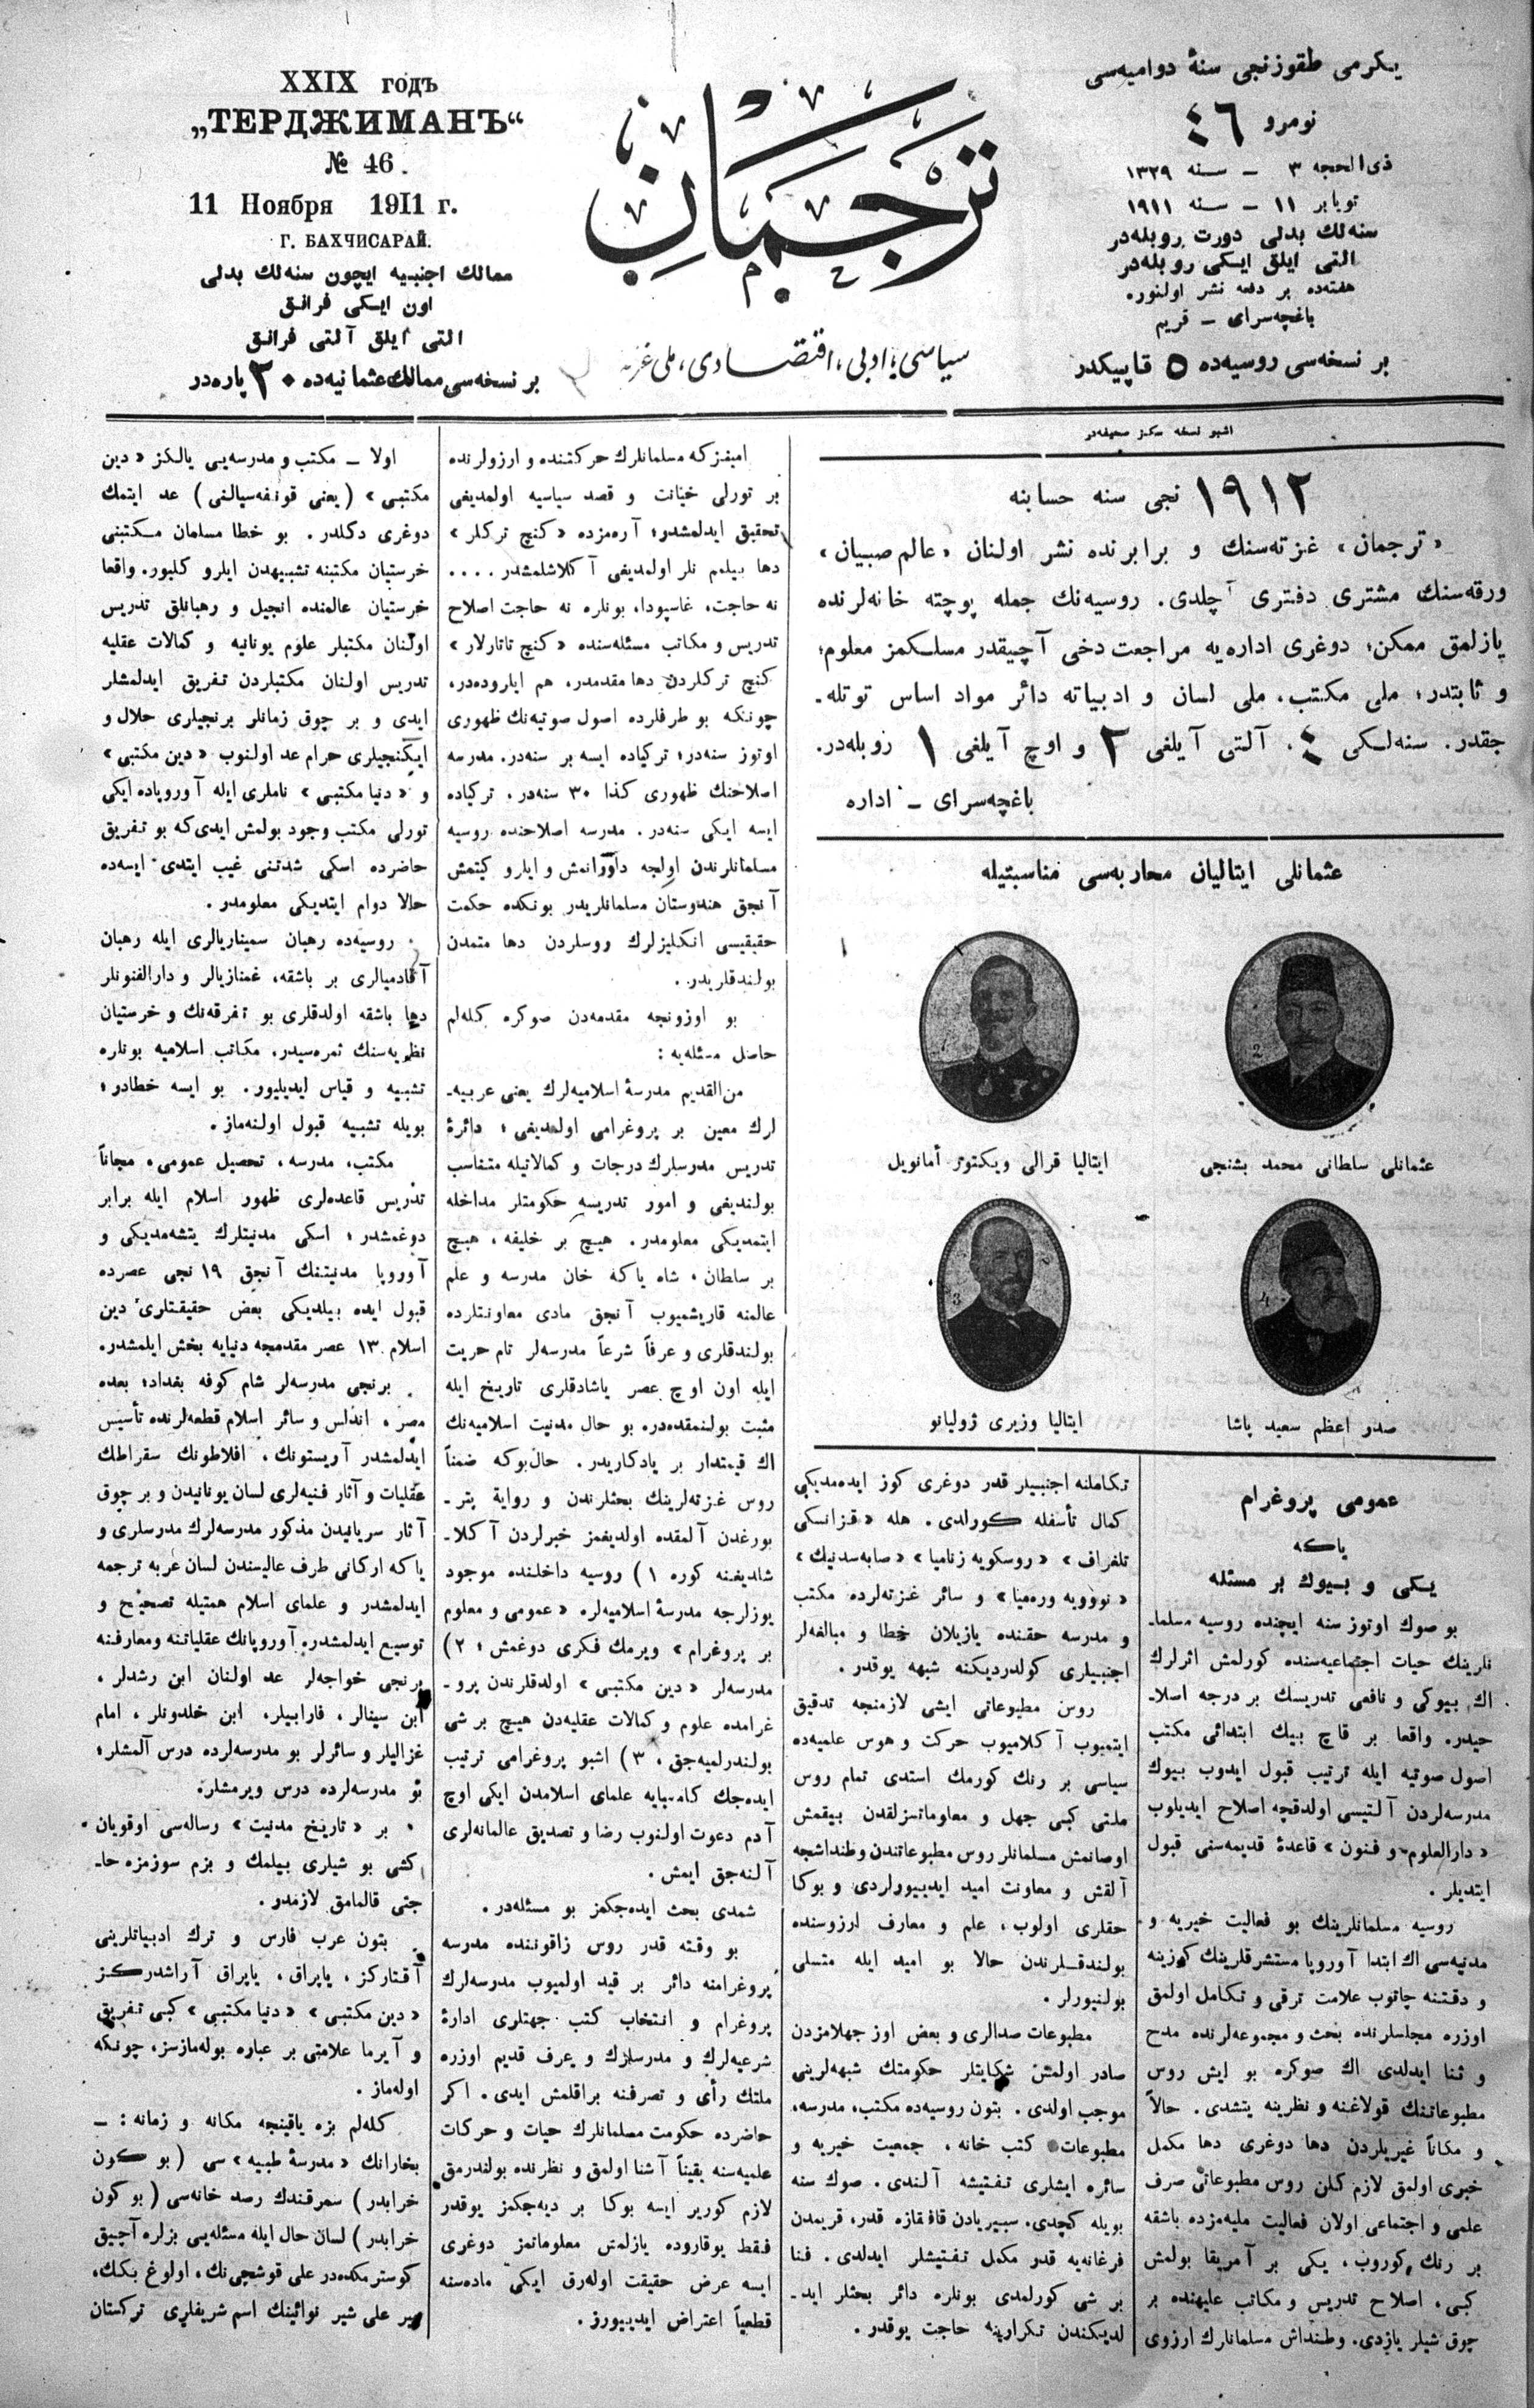 XXIX годъ
„ТЕРДЖИМАНЪ“
№ 46.
11 Ноября 1911 г.
Г. БАХЧИСАРАЙ.
ممالك اجنبيه ايچون سنه‌لك بدلى
اون ايكى فرانق
التى آيلق آلتى فرانق
بر نسخه‌سى ممالك عثمانيه‌ده ٢٠ پاره‌در
ترجمان
سياسى، ادبى، اقتصادى، ملى غزته
يكرمى طقوزنجى سنهٔ دواميه‌سى
نومرو ٤٦
ذى‌الحجه ٣ ــ سنه ١٣٢٩
نويابر ١١ ــ سنه ١٩١١
سنه‌لك بدلى دورت روبله‌در
التى ايلق ايكى روبله‌در
هفته‌ده بر دفعه نشر اولنور
باغچه‌سراى ــ قريم
بر نسخه‌سى روسيه‌ده ٥ قاپيكدر
اشبو نسخه سكز صحيفه‌در
١٩١٢ نجى سنه حسابنه
«ترجمان» غزته‌سنك و برابرنده نشر اولنان «عالم صبيان»
ورقه‌سنك مشترى دفترى آچلدى. روسيه‌نك جمله پوچته خانه‌لرنده
يازلمق ممكن؛ دوغرى اداره‌يه مراجعت دخى آچيقدر مسلكمز معلوم؛
و ثابتدر؛ ملى مكتب، ملى لسان و ادبياته دائر مواد اساس توتله‌ـ
جقدر. سنه‌لكى ٤، آلتى آيلغى ٢ و اوچ آيلغى ١ روبله‌در.
باغچه‌سراى ــ اداره
عثمانلى ايتاليان محاربه‌سى مناسبتيله
2
عثمانلى سلطانى محمد بشنجى
ايتاليا قرالى ويكتور أمانويل
4
3
صدر اعظم سعيد پاشا
ايتاليا وزيرى ژوليانو
عمومى پروغرام
ياكه
يكى و بيوك بر مسئله
بو صوك اوتوز سنه ايچنده روسيه مسلماـ
نلرينك حيات اجتماعيه‌سنده كورلمش اثرلرك
اك بيوكى و نافعى تدريسك بر درجه اصلاـ
حيدر. واقعا بر قاچ بيك ابتدائى مكتب
اصول صوتيه ايله ترتيب قبول ايدوب بيوك
مدرسه‌لردن آلتيسى اولدقچه اصلاح ايديلوب
«دارالعلوم و فنون» قاعدهٔ قديمه‌سنى قبول
ايتديلر.
روسيه مسلمانلرينك بو فعاليت خيريه و
مدنيه‌سى اك ابتدا آوروپا مستشرقلرينك كوزينه
و دقتنه چاتوب علامت ترقى و تكامل اولمق
اوزره مجلسلرنده بحث و مجموعه‌لرنده مدح
و ثنا ايدلدى اك صوكره بو ايش روس
مطبوعاتنك قولاغنه و نظرينه يتشدى. حالاً
و مكاناً غيريلردن دها دوغرى دها مكمل
خبرى اولمق لازم كلن روس مطبوعاتى صرف
علمى و اجتماعى اولان فعاليت مليه‌مزده باشقه
بر رنك كوروب، يكى بر آمريقا بولمش
كبى، اصلاح تدريس و مكاتب عليهنده بر
چوق شيلر يازدى. وطنداش مسلمانلرك ارزوى
تكاملنه اجنبيلر قدر دوغرى كوز ايده‌مديكى
كمال تأسفله كورلدى. هله «قزانسكى
تلغراف» «روسكويه زناميا» «صابه‌سدنيك»
«نوويه وره‌ميا» و سائر غزته‌لرده مكتب
و مدرسه حقنده يازيلان خطا و مبالغه‌لر
اجنبيلرى كولدرديكنه شبهه يوقدر.
روس مطبوعاتى ايشى لازمنجه تدقيق
ايتميوب آكلاميوب حركت و هوس علميه‌ده
سياسى بر رنك كورمك استدى تمام روس
ملتى كبى جهل و معلوماتسزلقدن بيقمش
اوصانمش مسلمانلر روس مطبوعاتندن وطنداشجه
آلقش و معاونت اميد ايدييورلردى و بوكا
حقلرى اولوب، علم و معارف ارزوسنده
بولندقلرندن حالا بو اميد ايله متسلى
بولنيورلر.
مطبوعات صدالرى و بعض اوز جهلامزدن
صادر اولمش شكايتلر حكومتك شبهه‌لرينى
موجب اولدى. بتون روسيه‌ده مكتب، مدرسه،
مطبوعات كتب خانه، جمعيت خيريه و
سائره ايشلرى تفتيشه آلندى. صوك سنه
بويله كچدى. سيبريادن قافقازه قدر، قريمدن
فرغانه‌يه قدر مكمل تفتيشلر ايدلدى. فنا
بر شى كورلمدى بونلره دائر بحثلر ايدـ
لديكندن تكرارينه حاجت يوقدر.
اميفزكه مسلمانلرك حركتنده و ارزولرنده
بر تورلى خيانت و قصد سياسيه اولمديغى
تحقيق ايدلمشدر؛ آره‌مزده «كنچ تركلر»
دها بيلمم نلر اولمديغى آكلاشلمشدر ....
نه حاجت، غاسپودا، بونلره نه حاجت اصلاح
تدريس و مكاتب مسئله‌سنده «كنچ تاتارلار»
كنچ تركلردن دها مقدمدر، هم ايلروده‌در،
چونكه بو طرفلرده اصول صوتيه‌نك ظهورى
اوتوز سنه‌در؛ تركياده ايسه بر سنه‌در. مدرسه
اصلاحنك ظهورى كذا ٣٠ سنه‌در. تركياده
ايسه ايكى سنه‌در. مدرسه اصلاحنده روسيه
مسلمانلرندن اولجه داورانمش و ايلرو كيتمش
آنجق هندوستان مسلمانلريدر بونكده حكمت
حقيقيسى انكليزلرك روسلردن دها متمدن
بولندقلريدر.
بو اوزونجه مقدمه‌دن صوكره كله‌لم
حاصل مسئله‌يه:
من‌القديم مدرسهٔ اسلاميه‌لرك يعنى عربيه‌ـ
لرك معين بر پروغرامى اولمديغى؛ دائرهٔ
تدريس مدرسلرك درجات و كمالاتيله متناسب
بولنديغى و امور تدريسه حكومتلر مداخله
ايتمديكى معلومدر. هيچ بر خليفه، هيچ
بر سلطان، شاه ياكه خان مدرسه و علم
عالمنه قاريشميوب آنجق مادى معاونتلرده
بولندقلرى و عرفاً شرعاً مدرسه‌لر تام حريت
ايله اون اوچ عصر ياشادقلرى تاريخ ايله
مثبت بولنمقده‌در. بو حال مدنيت اسلاميه‌نك
اك قيمتدار بر يادكاريدر. حال‌بوكه ضمناً
روس غزته‌لرينك بحثلرندن و رواية پترـ
بورغدن آلمقده اولديغمز خبرلردن آكلاـ
شلديغنه كوره ١) روسيه داخلنده موجود
يوزلرجه مدرسهٔ اسلاميه‌لره «عمومى و معلوم
بر پروغرام» ويرمك فكرى دوغمش؛ ٢)
مدرسه‌لر «دين مكتبى» اولدقلرندن پروـ
غرامده علوم و كمالات عقليه‌دن هيچ بر شى
بولندرلميه‌جق، ٣) اشبو پروغرامى ترتيب
ايده‌جك كاميابه علماى اسلامدن ايكى اوچ
آدم دعوت اولنوب رضا و تصديق عالمانه‌لرى
آلنه‌جق ايمش.
شمدى بحث ايده‌جكمز بو مسئله‌در.
بو وقته قدر روس زاقوننده مدرسه
پروغرامنه دائر بر قيد اولميوب مدرسه‌لرك
پروغرام و انتخاب كتب جهتلرى ادارهٔ
شرعيه‌لرك و مدرسلرك و عرف قديم اوزره
ملتك رأى و تصرفنه براقلمش ايدى. اكر
حاضرده حكومت مسلمانلرك حيات و حركات
علميه‌سنه يقيناً آشنا اولمق و نظرنده بولندرمق
لازم كورير ايسه بوكا بر ديه‌جكمز يوقدر
فقط يوقاروده يازلمش معلوماتمز دوغرى
ايسه عرض حقيقت اوله‌رق ايكى ماده‌سنه
قطعياً اعتراض ايدييورز.
اولا ــ مكتب و مدرسه‌يى يالكز «دين
مكتبى» (يعنى قونفه‌سيالنى) عد ايتمك
دوغرى دكلدر. بو خطا مسلمان مكتبنى
خرستيان مكتبنه تشبيهدن ايلرو كليور. واقعا
خرستيان عالمنده انجيل و رهبانلق تدريس
اولنان مكتبلر علوم يونانيه و كمالات عقليه
تدريس اولنان مكتبلردن تفريق ايدلمشلر
ايدى و بر چوق زمانلر برنجيلرى حلال و
ايكنجيلرى حرام عد اولنوب «دين مكتبى»
و «دنيا مكتبى» ناملرى ايله آوروپاده ايكى
تورلى مكتب وجود بولمش ايدى‌كه بو تفريق
حاضرده اسكى شدتنى غيب ايتدى ايسه‌ده
حالا دوام ايتديكى معلومدر.
روسيه‌ده رهبان سميناريالرى ايله رهبان
آقادميالرى بر باشقه، غمنازيالر و دارالفنونلر
دها باشقه اولدقلرى بو تفرقه‌نك و خرستيان
نظريه‌سنك ثمره‌سيدر. مكاتب اسلاميه بونلره
تشبيه و قياس ايديليور. بو ايسه خطادر؛
بويله تشبيه قبول اولنه‌ماز.
مكتب، مدرسه، تحصيل عمومى، مجاناً
تدريس قاعده‌لرى ظهور اسلام ايله برابر
دوغمشدر؛ اسكى مدنيتلرك يتشه‌مديكى و
آوروپا مدنيتنك آنجق ١٩ نجى عصرده
قبول ايده بيلديكى بعض حقيقتلرى دين
اسلام ١٣ عصر مقدمجه دنيايه بخش ايلمشدر.
برنجى مدرسه‌لر شام كوفه بغداد؛ بعده
مصر، اندلس و سائر اسلام قطعه‌لرنده تأسيس
ايدلمشدر آريستونك، افلاطونك سقراطك
عقليات و آثار فنيه‌لرى لسان يونانيدن و بر چوق
آثار سريانيدن مذكور مدرسه‌لرك مدرسلرى و
ياكه اركانى طرف عاليسندن لسان عربه ترجمه
ايدلمشدر و علماى اسلام همتيله تصحيح و
توسيع ايدلمشدر. آوروپانك عقلياتنه ومعارفنه
برنجى خواجه‌لر عد اولنان ابن رشدلر،
ابن سينالر، فارابيلر، ابن خلدونلر، امام
غزاليلر و سائرلر بو مدرسه‌لرده درس آلمشلر؛
بو مدرسه‌لرده درس ويرمشلر.
بر «تاريخ مدنيت» رساله‌سى اوقويان
كشى بو شيلرى بيلمك و بزم سوزمزه حاـ
جتى قالمامق لازمدر.
بتون عرب فارس و ترك ادبياتلرينى
آقتاركز، ياپراق، ياپراق آراشدركز
«دين مكتبى» «دنيا مكتبى» كبى تفريق
و آيرما علامتى بر عباره بوله‌مازسز، چونكه
اوله‌ماز.
كله‌لم بزه ياقينجه مكانه و زمانه: ــ
بخارانك «مدرسهٔ طبيه» سى (بو كون
خرابدر) سمرقندك رصد خانه‌سى (بو كون
خرابدر) لسان حال ايله مسئله‌يى بزلره آچيق
كوسترمكده‌در على قوشچى‌نك، اولوغ بكك،
مير على شير نوائينك اسم شريفلرى تركستان